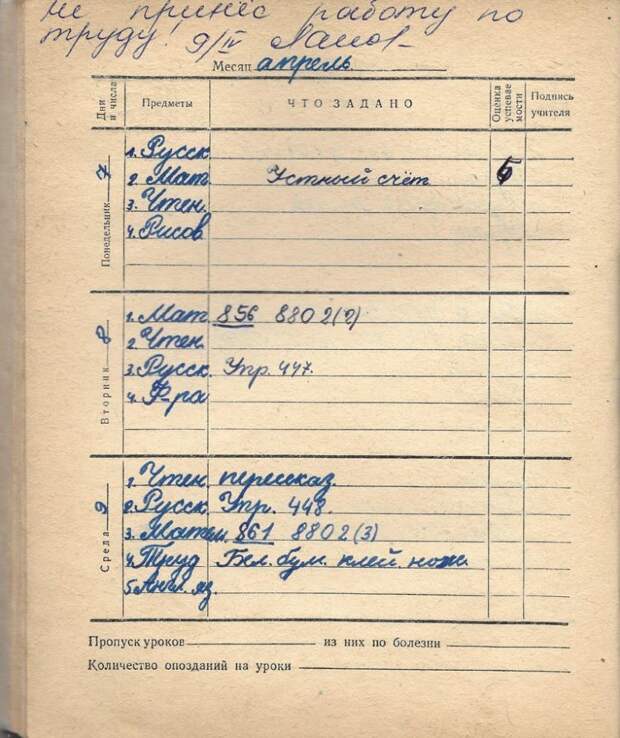 не принёс работу по
труду! 9/IV
Месяц апрель
Дни и числа Предметы ЧТО ЗАДАНО Оценка успевае мости Подпись учителя
Понедельник 7
1. Русск.
2. Мат. Устный счёт 5
3. Чтен.
4. Рисов
Вторник 8
1. Мат. 856 880 2(2)
2. Чтен.
3. Русск. Упр. 447.
4. Ф-ра
Среда 9
1. Чтен. пересказ.
2. Русск. Упр. 448.
3. Матем. 861 880 2(3)
4. Труд Бел. бум. клей. нож.
5 Англ. яз.
Пропуск уроков из них по болезни
Количество опозданий на уроки